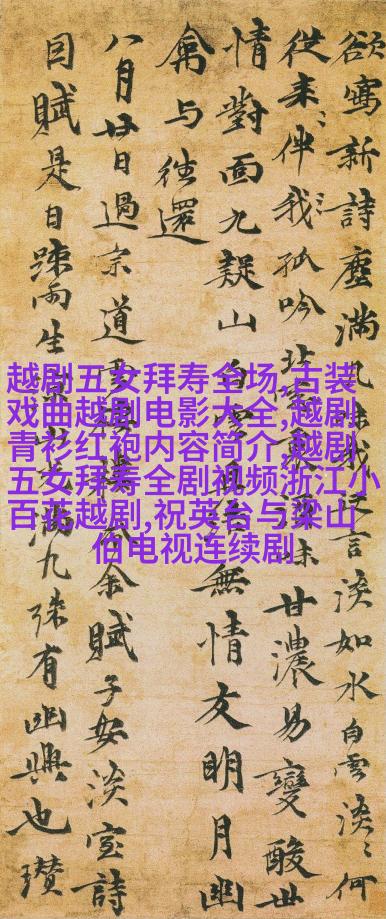 欲寫新詩塵滿言淡如水白雲淡々何
從来々伴我々孤吟味甘濃易變酸世
情對面九疑山白雲無情友明月幽
禽与往還
八月廿日過宗道余賦子安淡室詩
因賦是日疎雨生滿九殊有幽興也瓚
越剧五女拜寿全场,古装
戏曲越剧电影大全,越剧
青衫红袍内容简介,越剧
五女拜寿全剧视频浙江小
百花越剧,祝英台与梁山
伯电视连续剧